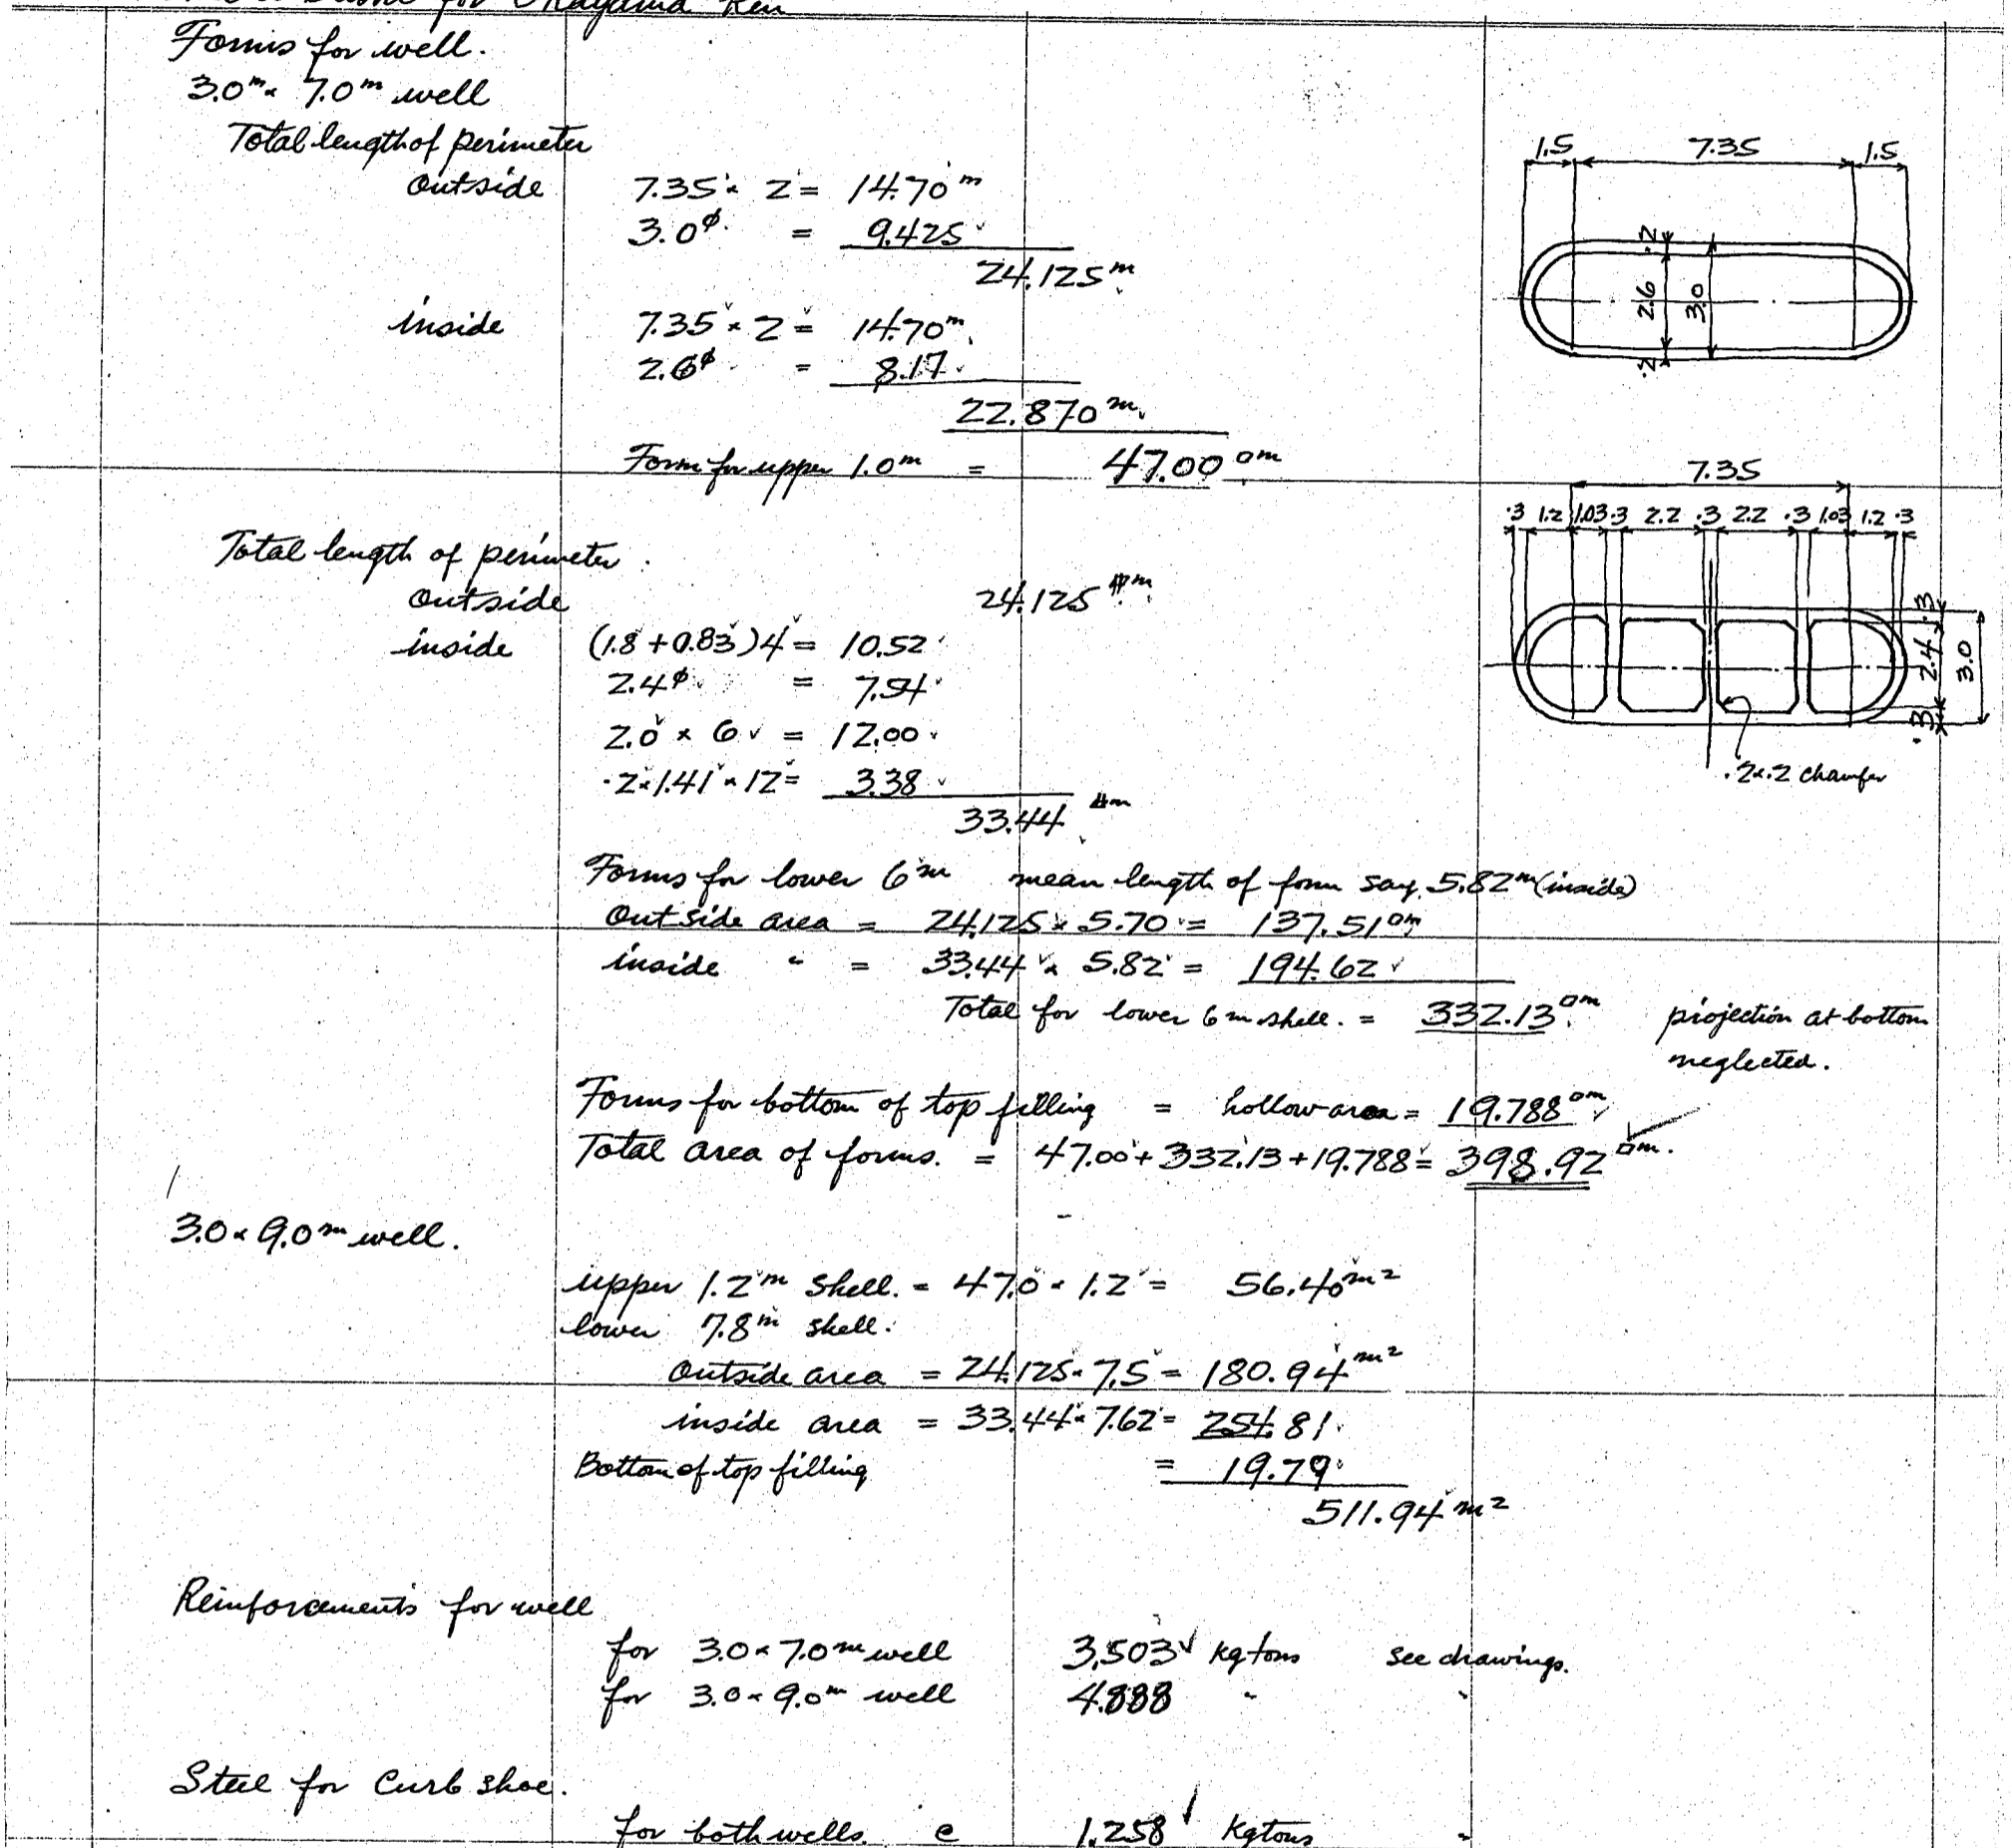 for Okayama Ken
Forms for well.
3.0m × 7.0m well
Total length of perimeter
outside 7.35 × 2 = 14.70 m
3.0φ = 9.425
24.125 m
inside 7.35 × 2 = 14.70 m
2.6φ = 8.17
22.870 m
Form for upper 1.0m = 47.00 □m
1.5 7.35 1.5
.2
2.6 3.0
.2
Total length of perimeter.
outside 24.125 m
inside (1.8 + 0.83) 4 = 10.52
2.4φ = 7.54
2.0 × 6 = 12.00
.2 × 1.41 × 12 = 3.38
33.44 m
7.35
.3 1.2 1.03 .3 2.2 .3 2.2 .3 1.03 1.2 .3
.3
2.4 3.0
.3
.2×.2 chamfer
Forms for lower 6m mean length of form say. 5.82m (inside)
Outside area = 24.125 × 5.70 = 137.51 □m
inside " = 33.44 × 5.82 = 194.62
Total for lower 6m shell. = 332.13 □m projection at bottom
neglected.
Forms for bottom of top filling = hollow area = 19.788 □m
Total area of forms. = 47.00 + 332.13 + 19.788 = 398.92 □m.
3.0 × 9.0m well.
upper 1.2m shell. = 47.0 × 1.2 = 56.40 m²
lower 7.8m shell.
Outside area = 24.125 × 7.5 = 180.94 m²
inside area = 33.44 × 7.62 = 254.81
Bottom of top filling = 19.79
511.94 m²
Reinforcements for well
for 3.0 × 7.0m well 3,503 kg tons see drawings.
for 3.0 × 9.0m well 4.888 " "
Steel for Curb shoe.
for both wells. e 1.258 Kg tons "